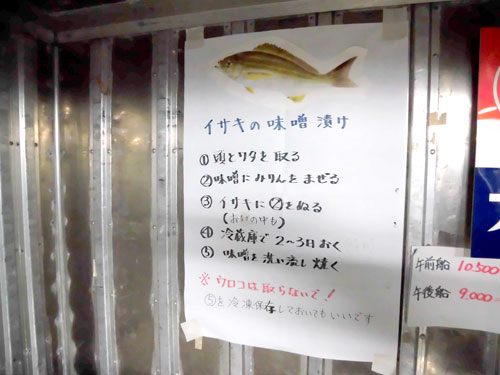 イサキの味噌漬け
① 頭とワタを取る
② 味噌にみりんをまぜる
③ イサキに②をぬる
(お腹の中も)
④ 冷蔵庫で2〜3日おく
⑤ 味噌を洗い流し焼く
※ウロコは取らないで!
⑤を冷凍保存しておいてもいいです
午前船 10.500
午後船 9.000